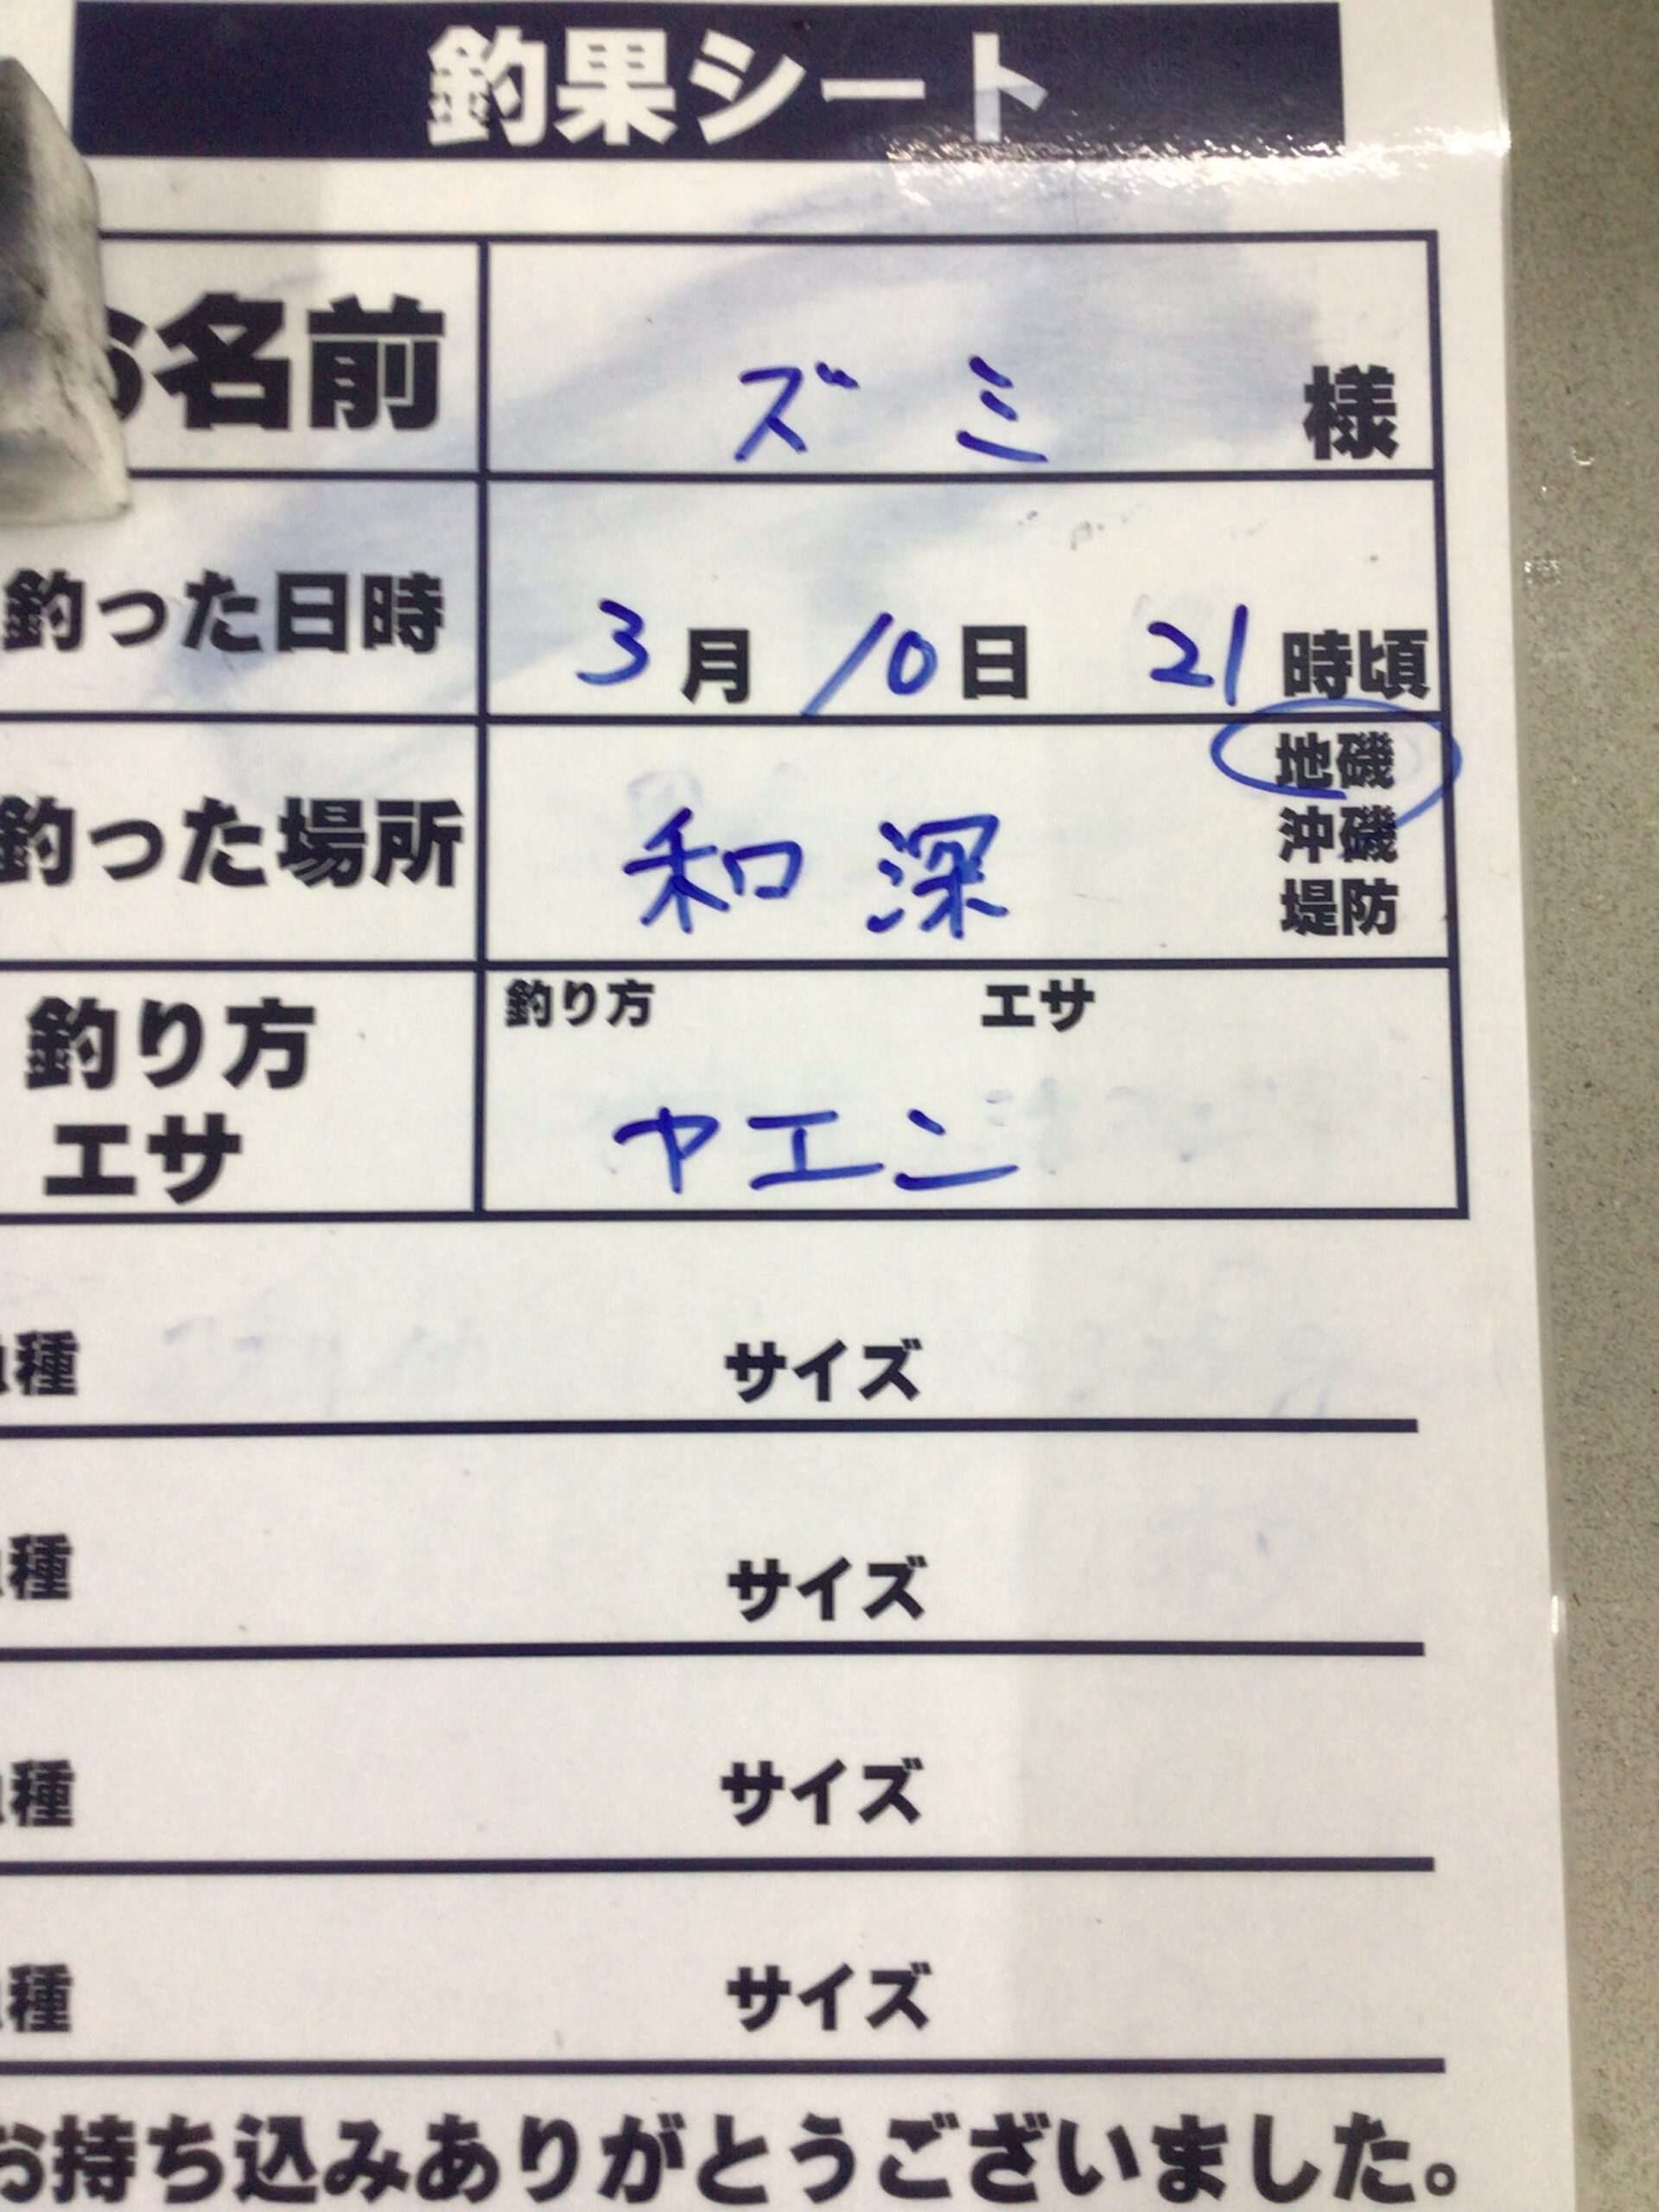 釣果シート
お名前 ズミ 様
釣った日時 3月10日 21時頃
釣った場所 和深 地磯
沖磯
堤防
釣り方 釣り方 エサ
エサ ヤエン
種 サイズ
種 サイズ
種 サイズ
種 サイズ
お持ち込みありがとうございました。